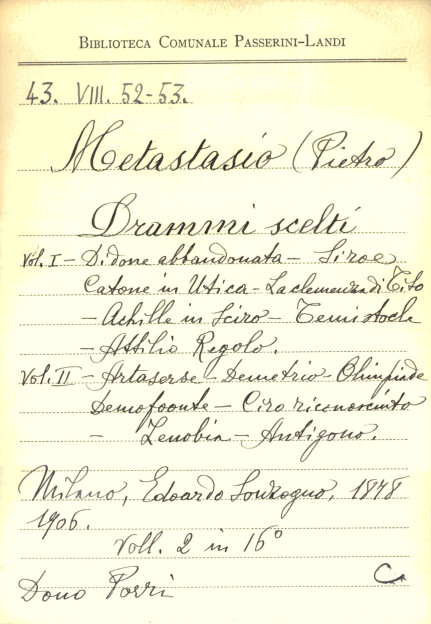 BIBLIOTECA COMUNALE PASSERINI-LANDI
43. VIII. 52-53.
Metastasio (Pietro)
Drammi scelti
Vol. I – Didone abbandonata – Siroe
Catone in Utica – La clemenza di Tito
– Achille in Sciro – Temistocle
– Attilio Regolo.
Vol. II – Artaserse – Demetrio – Olimpiade
Demofoonte – Ciro riconosciuto
– Zenobia – Antigono.
Milano, Edoardo Sonzogno, 1878
1906.
Voll. 2 in 16°
Dono Porri